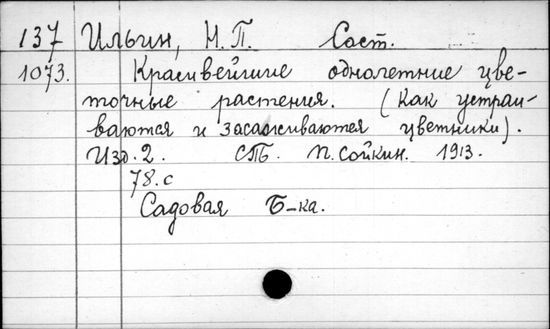 137 Ильин, Н.П. Сост.
1073. Красивейшие однолетние цве-
точные растения. (Как устраи-
ваются и засаживаются цветники).
Изд. 2. СПБ. П. Сойкин. 1913.
78. с
Садовая Б-ка.